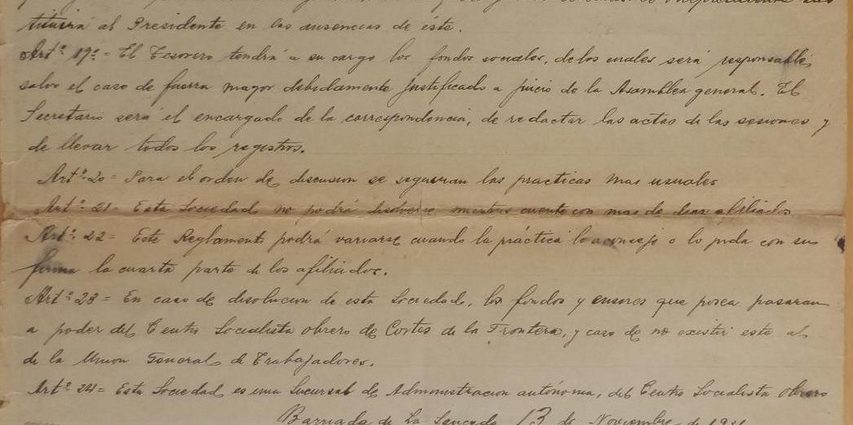 tituirá al Presidente en las ausencias de éste.
Artº 19º = El Tesorero tendrá a su cargo los fondos sociales, de los cuales será responsable,
salvo el caso de fuerza mayor debidamente justificado a juicio de la Asamblea general. El
Secretario será el encargado de la correspondencia, de redactar las actas de las sesiones y
de llevar todos los registros.
Artº 20 = Para el orden de discusion se seguiran las practicas mas usuales
Artº 21 = Esta Sociedad no podrá disolverse mientras cuente con mas de diez afiliados
Artº 22 = Este Reglamento podrá variarse cuando la práctica lo aconseje o lo pida con su
firma la cuarta parte de los afiliados.
Artº 23 = En caso de disolucion de esta Sociedad, los fondos y enseres que posea pasaran
a poder del Centro Socialista obrero de Cortes de la Frontera, y caso de no existir este al
de la Union General de Trabajadores.
Artº 24 = Esta Sociedad es una Sucursal de Administracion autónoma, del Centro Socialista obrero
Barriada de La 13 de Noviembre de